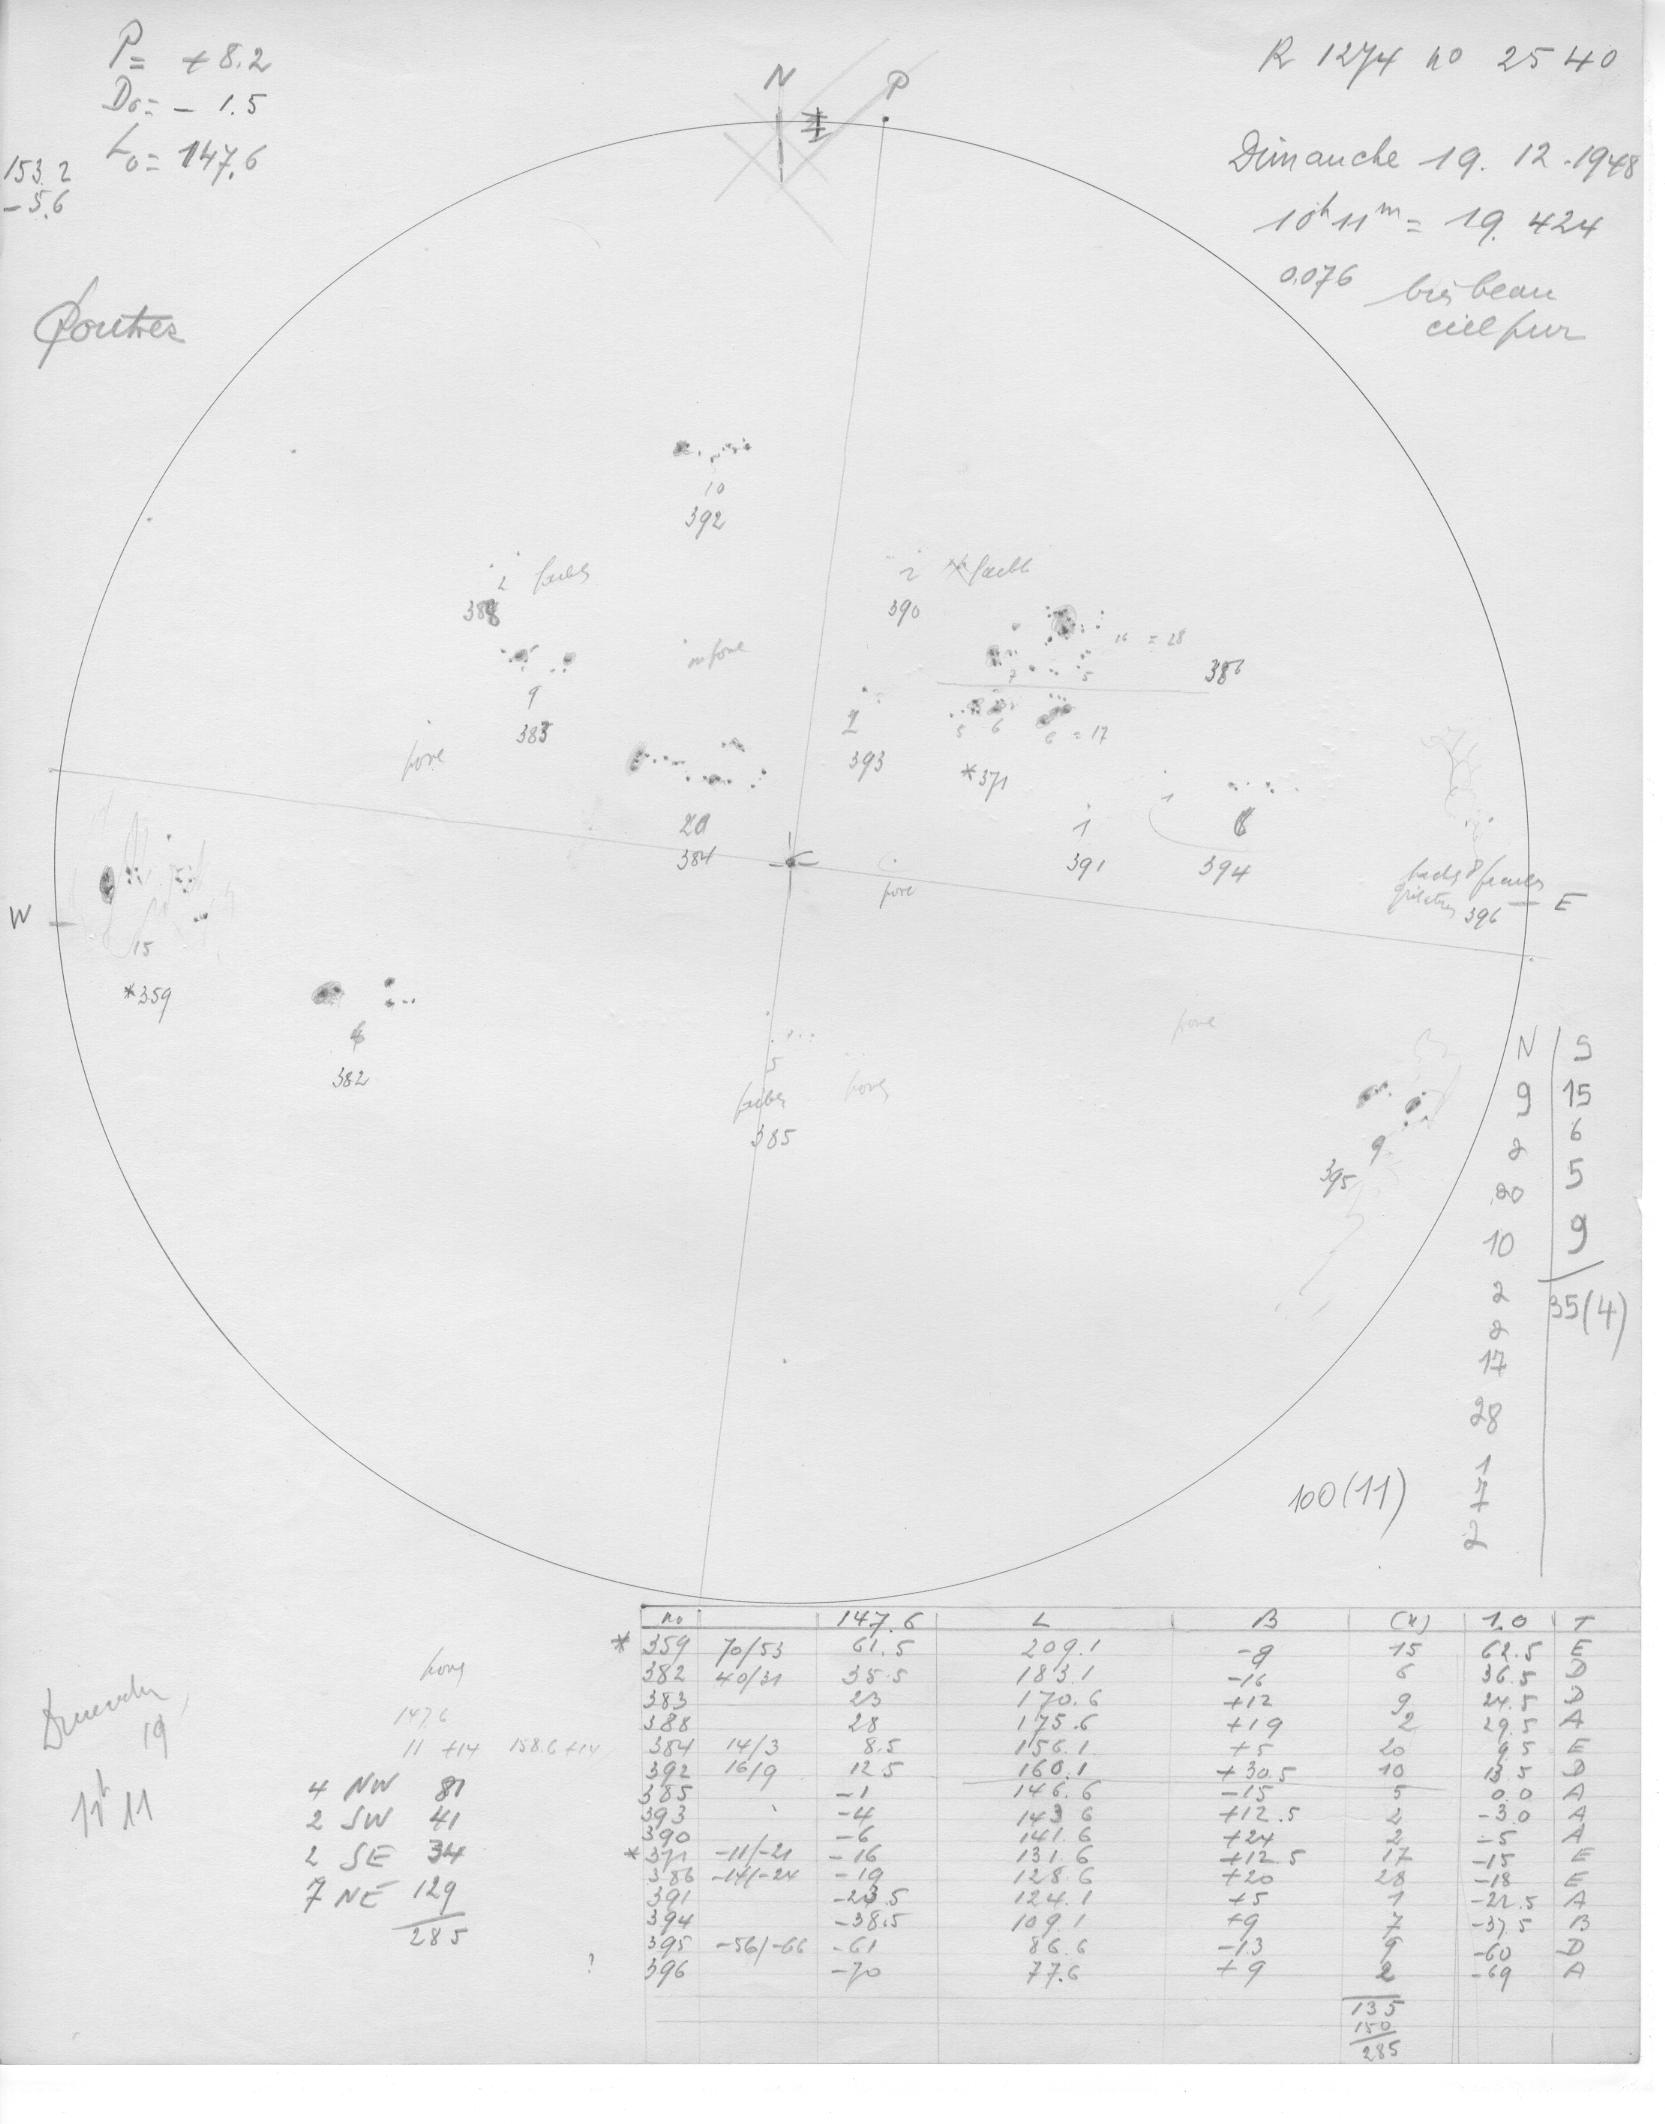 P= +8.2
D₀= - 1.5
L₀= 147.6
153.2
- 5.6
R 1274 no 2540
Dimanche 19. 12 - 1948
10h 11m = 19. 424
0.076
très beau
ciel pur
N
P
10
392
2 faibles
388
2 faible
390
16 = 28
7 5
386
9
383
pore
2
393
5 6 6 = 17
*371
20
384
1
391
1
8
394
pore
396
W
E
15
*359
6
382
5
faibles
385
pores
pore
9
395
N | S
9 | 15
2 | 6
20 | 5
10 | 9
2 | 35(4)
2
17
28
1
7
2
100(11)
no 147.6 L B (n) 1.0 T
* 359 70/53 61.5 209.1 -9 15 62.5 E
382 40/31 35.5 183.1 -16 6 36.5 D
383 23 170.6 +12 9 24.5 D
388 28 175.6 +19 2 29.5 A
384 14/3 8.5 156.1 +5 20 9.5 E
392 16/9 12.5 160.1 +30.5 10 13.5 D
385 -1 146.6 -15 5 0.0 A
393 -4 143.6 +12.5 2 -3.0 A
390 -6 141.6 +24 2 -5 A
* 371 -11/-21 -16 131.6 +12.5 17 -15 E
386 -14/-24 -19 128.6 +20 28 -18 E
391 -23.5 124.1 +5 1 -22.5 A
394 -38.5 109.1 +9 7 -37.5 B
395 -56/-66 -61 86.6 -13 9 -60 D
? 396 -70 77.6 +9 2 -69 A
135
150
285
pores
147.6
11 +14 158.6 +14
19
4 NW 81
2 SW 41
2 SE 34
7 NE 129
285